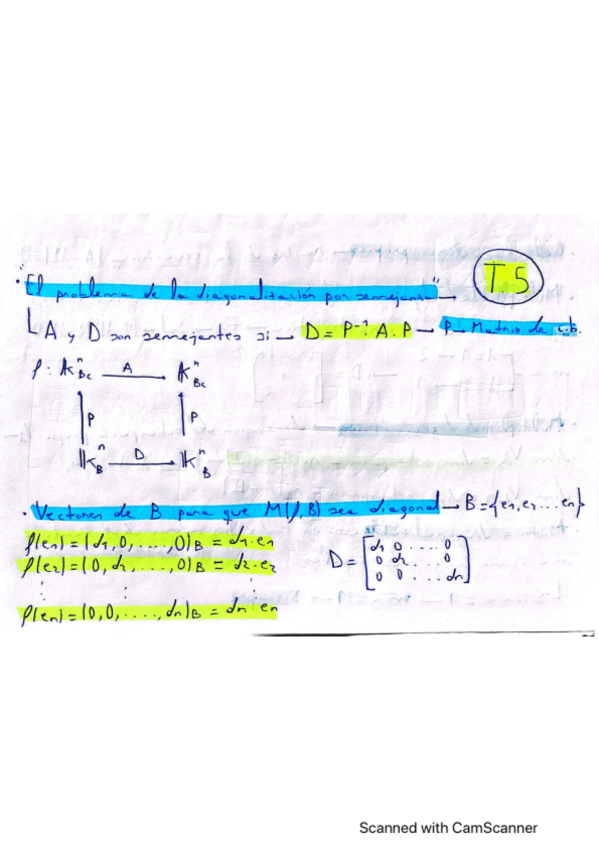 T.5
· "El problema de la diagonalización por semejanza" →
A y D son semejantes si → D = P⁻¹ · A · P → P → Matriz de c.b.
f : 𝕂ⁿ_Bc —A→ 𝕂ⁿ_Bc
P P
𝕂ⁿ_B —D→ 𝕂ⁿ_B
· Vectores de B para que M(f, B) sea diagonal → B = {e₁, e₂ ... en}
f(e₁) = (d₁, 0, ...., 0)_B = d₁ · e₁
f(e₂) = (0, d₂, ...., 0)_B = d₂ · e₂
⋮ ⋮ ⋮
f(en) = (0, 0, ...., dn)_B = dn · en
D = [d₁ 0 .... 0
0 d₂ ... 0
0 0 ... dn]
Scanned with CamScanner